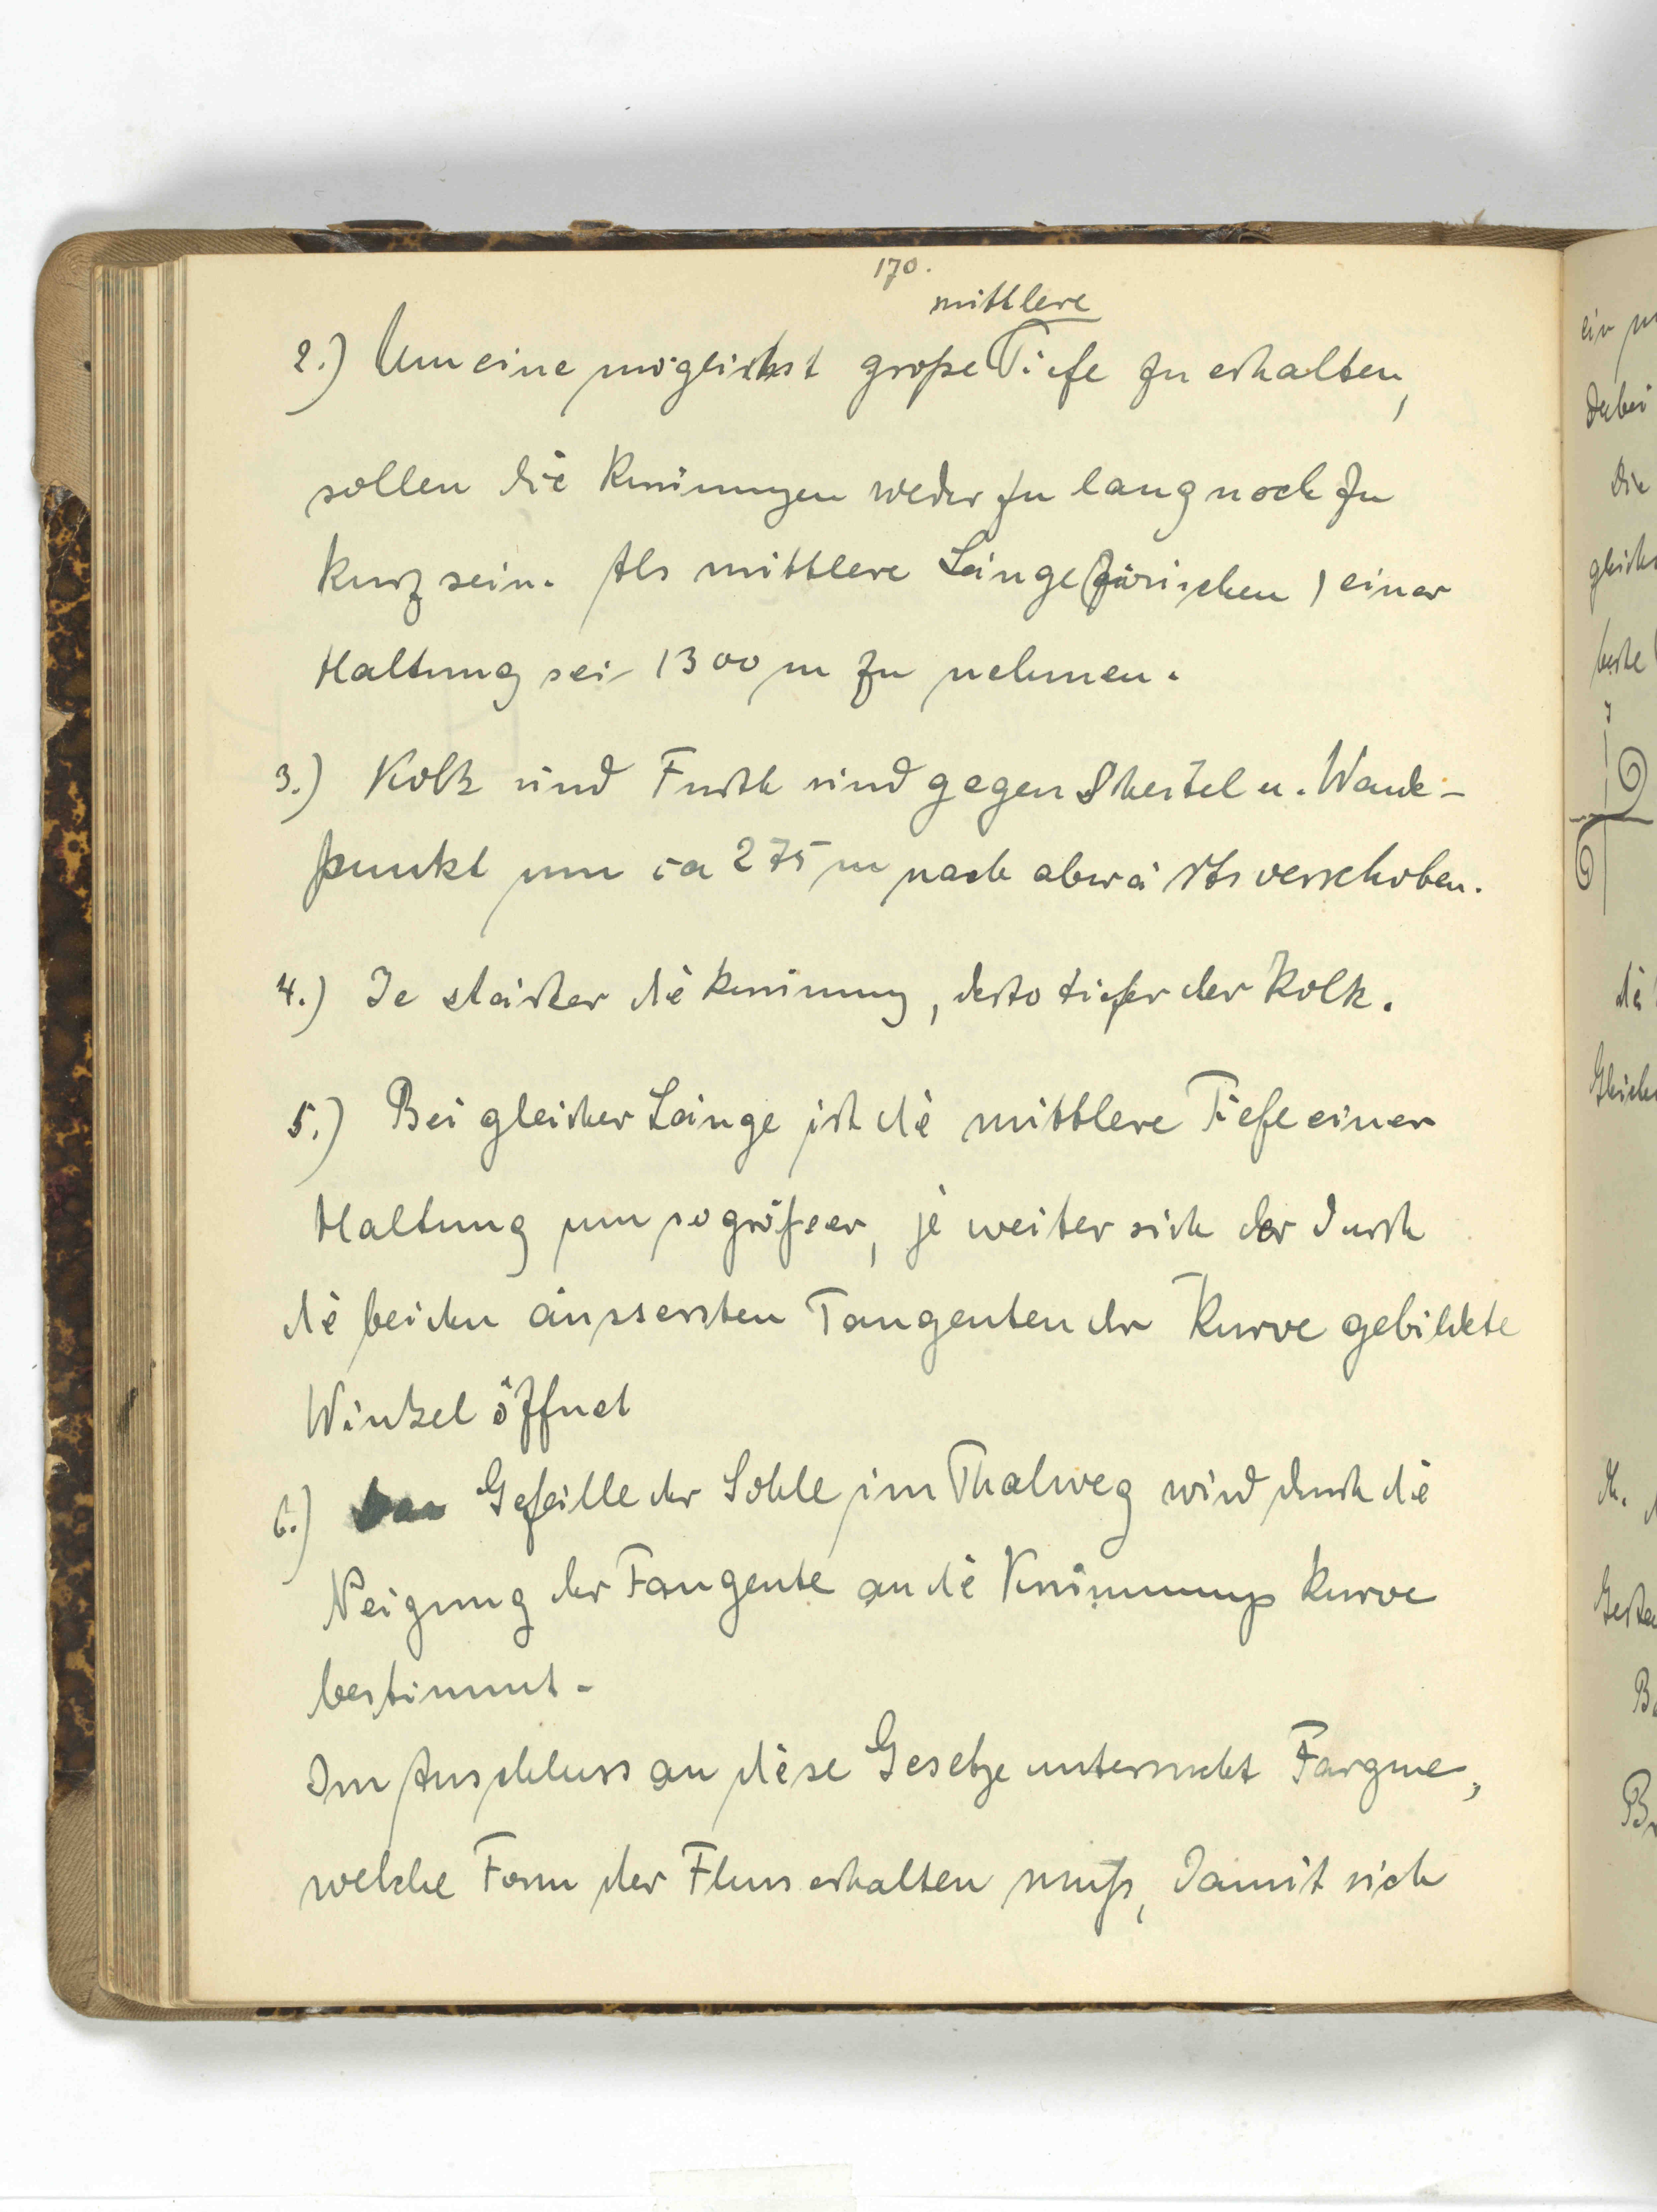 170.
mittlere
2.) Um eine möglichst große Tiefe zu erhalten,
sollen die Krümungen weder zu lang noch zu
kurz sein. Als mittlere Länge (zwischen) einer
Haltung sei 1300 m zu nehmen.
3.) Kolk und Furth sind gegen Scheitel u. Wende-
punkt um ca 275 m nach abwärts verschoben.
4.) Je stärker die Krümung, desto tiefer der Kolk.
5.) Bei gleicher Länge ist die mittlere Tiefe einer
Haltung um so größer, je weiter sich der durch
die beiden äussersten Tangenten der Kurve gebildete
Winkel öffnet
6.) Gefälle der Sohle im Thalweg wird durch die
Neigung der Tangente an die Krümmungskurve
bestimmt.
Im Anschluss an diese Gesetze untersucht Fargue,
welche Form der Fluss erhalten muß, damit sich
ein
Dabei
Die
die